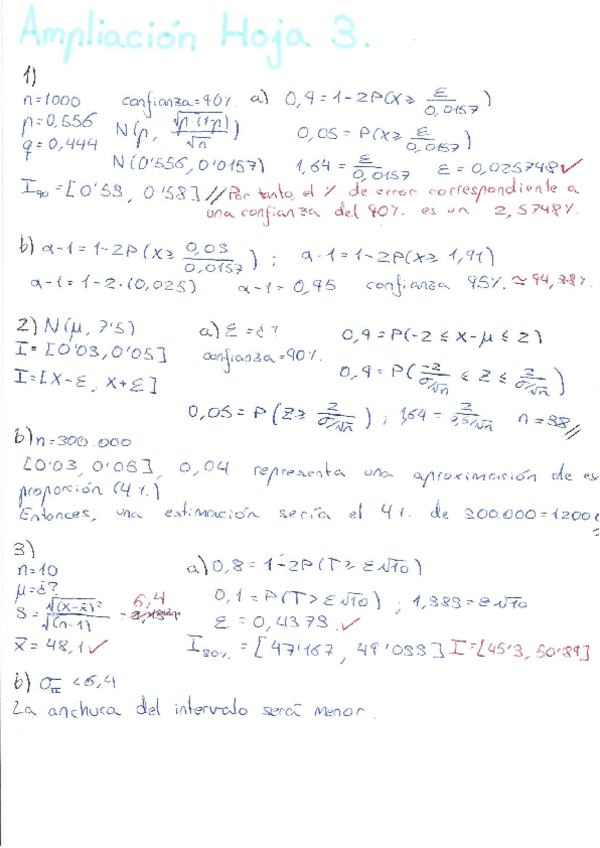 Ampliación Hoja 3.
1)
n=1000 confianza=90%. a) 0,9=1-2P(X≥ ε/0,0157)
p=0,556 N(p, √p·(1-p)/√n) 0,05=P(X≥ ε/0,0157)
q=0,444
N(0'556, 0'0157) 1,64= ε/0,0157 ε=0,025748✓
I90=[0'53, 0'58]// Por tanto, el % de error correspondiente a
una confianza del 90%. es un 2,5748%.
b) α-1=1-2P(X≥ 0,03/0,0157); α-1=1-2P(X≥1,91)
α-1=1-2·(0,025) α-1=0,95 confianza 95% ≃94,38%
2) N(μ, 7'5) a) ε=¿? 0,9=P(-2≤X-μ≤2)
I=[0'03, 0'05] confianza=90%. 0,9=P(-2/σ/√n ≤ Z ≤ 2/σ/√n)
I=[X-ε, X+ε]
0,05=P(Z≥ 2/σ/√n); 1,64= 2/ /√n n=38//
b) n=300.000
[0'03, 0'05], 0,04 representa una aproximación de es
proporción (4%.)
Entonces, una estimación sería el 4%. de 300.000=1200
3)
n=10 a) 0,8=1-2P(T≥ε√10)
μ=¿? 0,1=P(T>ε√10); 1,383=ε√10
S= √(X-x̄)²/√(n-1) = 6,4
ε=0,4373.✓
x̄=48,1✓ I80%=[47'167, 49'033] I=[45'3, 50'89]
b) <6,4
La anchura del intervalo será menor.